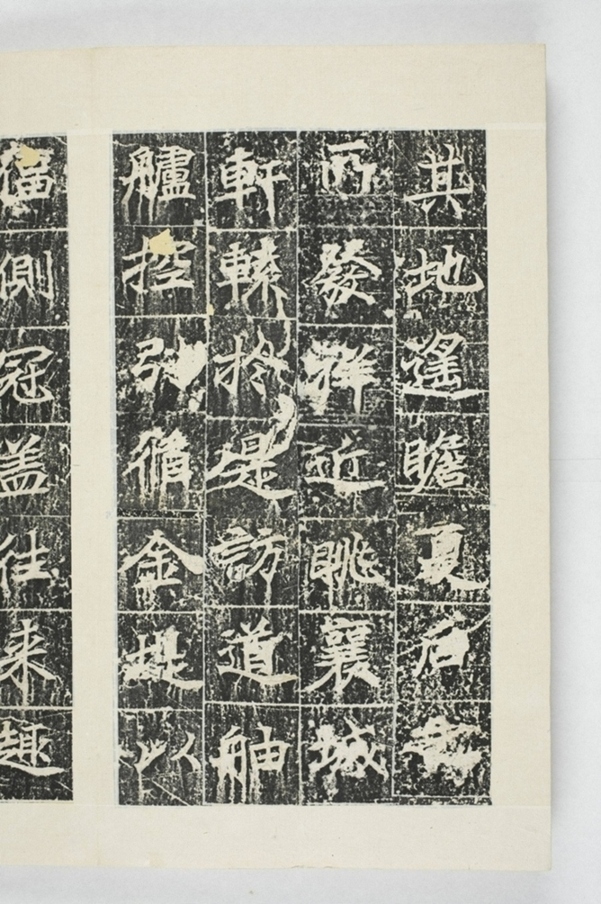 其地遙瞻夏后
所發祥近眺襄城
軒轅於是訪道舳
艫控引脩金堤以
側冠盖往来趣